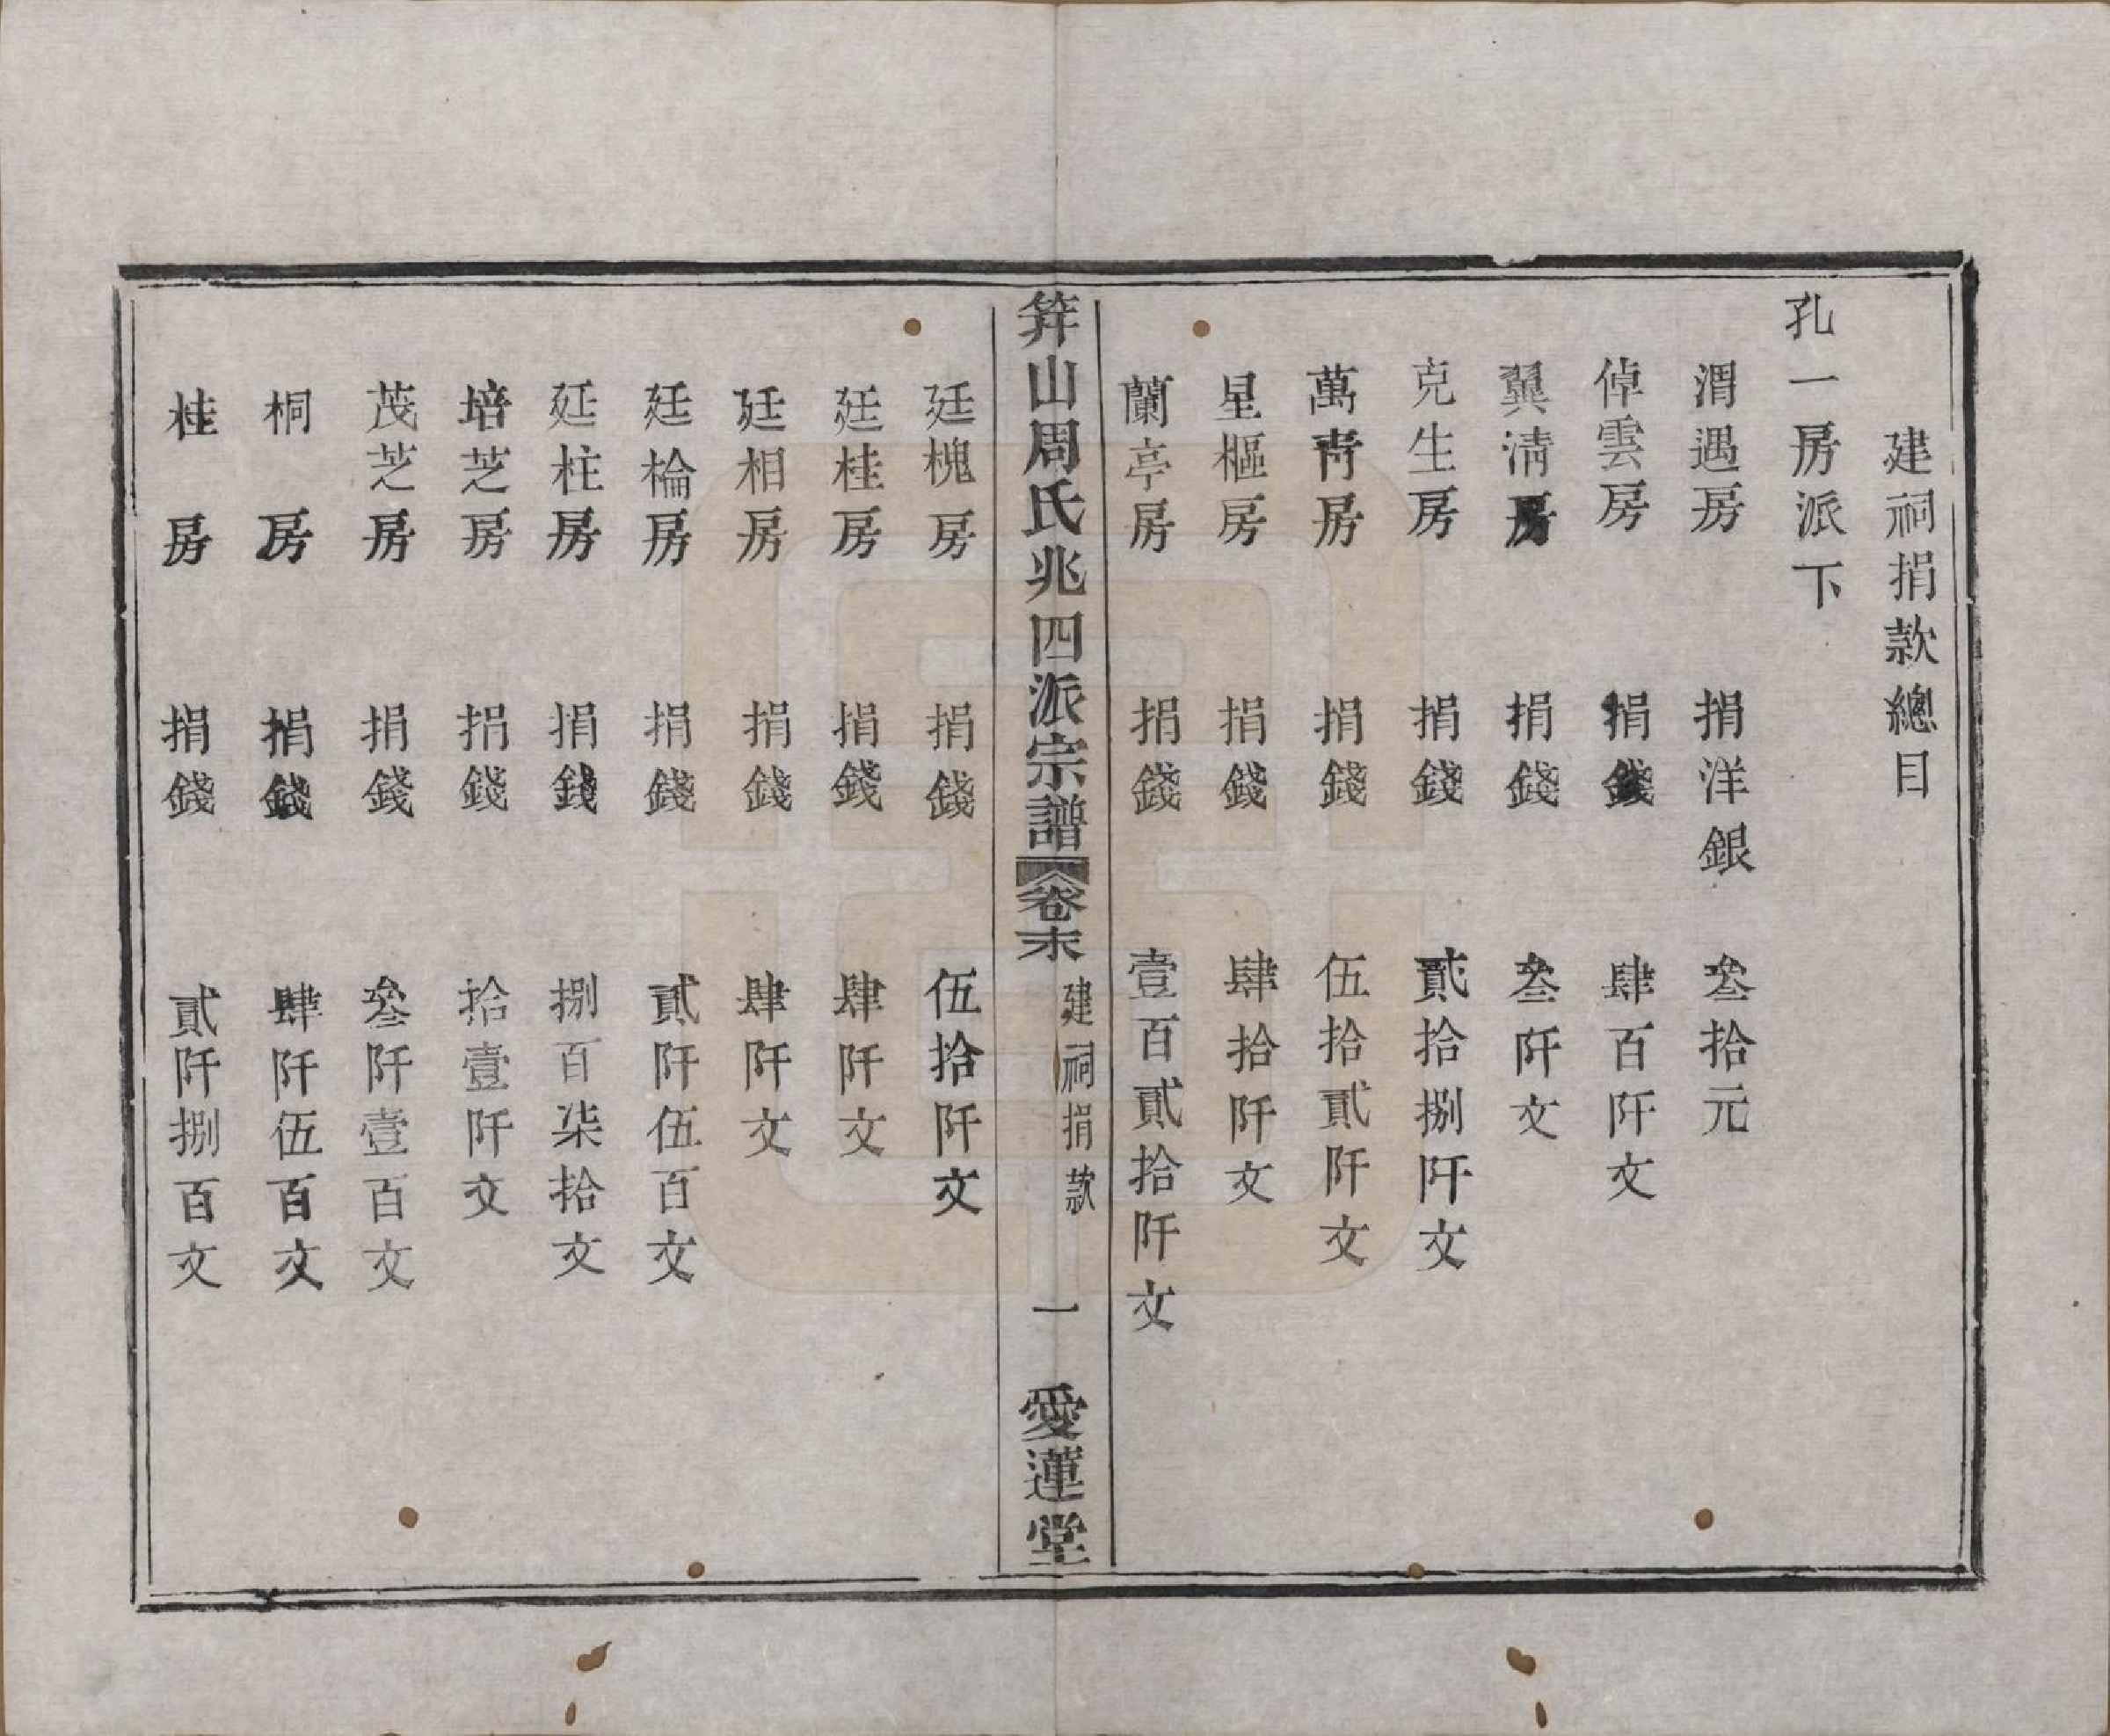 建祠捐款總目
孔一房派下
渭遇房 捐洋銀 叁拾元
倬雲房 捐錢 肆百阡文
翼淸房 捐錢 叁阡文
克生房 捐錢 貳拾捌阡文
萬靑房 捐錢 伍拾貳阡文
星樞房 捐錢 肆拾阡文
蘭亭房 捐錢 壹百貳拾阡文
筓山周氏兆四派宗譜 卷末 建祠捐款 一 愛蓮堂
廷槐房 捐錢 伍拾阡文
廷桂房 捐錢 肆阡文
廷相房 捐錢 肆阡文
廷棆房 捐錢 貳阡伍百文
廷柱房 捐錢 捌百柒拾文
培芝房 捐錢 拾壹阡文
茂芝房 捐錢 叁阡壹百文
桐房 捐錢 肆阡伍百文
桂房 捐錢 貳阡捌百文